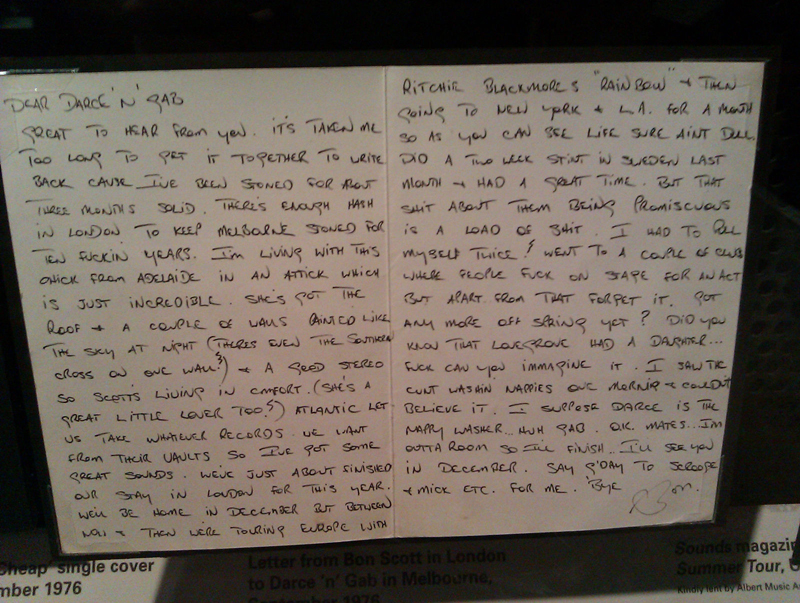 DEAR DARCE 'N' GAB
GREAT TO HEAR FROM YOU. IT'S TAKEN ME
TOO LONG TO GET IT TOGETHER TO WRITE
BACK CAUSE I'VE BEEN STONED FOR ABOUT
THREE MONTHS SOLID. THERE'S ENOUGH HASH
IN LONDON TO KEEP MELBOURNE STONED FOR
TEN FUCKIN YEARS. I'M LIVING WITH THIS
CHICK FROM ADELAIDE IN AN ATTICK WHICH
IS JUST INCREDIBLE. SHE'S GOT THE
ROOF & A COUPLE OF WALLS PAINTED LIKE
THE SKY AT NIGHT (THERES EVEN THE SOUTHERN
CROSS ON ONE WALL!) & A GOOD STEREO
SO SCOTTS LIVING IN COMFORT. (SHE'S A
GREAT LITTLE LOVER TOO!) ATLANTIC LET
US TAKE WHATEVER RECORDS WE WANT
FROM THEIR VAULTS SO I'VE GOT SOME
GREAT SOUNDS. WE'VE JUST ABOUT FINISHED
OUR STAY IN LONDON FOR THIS YEAR.
WE'LL BE HOME IN DECEMBER BUT BETWEEN
NOW & THEN WE'RE TOURING EUROPE WITH
RITCHIE BLACKMORES "RAINBOW" & THEN
GOING TO NEW YORK & L.A. FOR A MONTH
SO AS YOU CAN SEE LIFE SURE AINT DULL.
DID A TWO WEEK STINT IN SWEDEN LAST
MONTH & HAD A GREAT TIME. BUT THAT
SHIT ABOUT THEM BEING PROMISCUOUS
IS A LOAD OF SHIT. I HAD TO PULL
MYSELF TWICE! WENT TO A COUPLE OF CLUBS
WHERE PEOPLE FUCK ON STAGE FOR AN ACT
BUT APART FROM THAT FORGET IT. GOT
ANY MORE OFF SPRING YET? DID YOU
KNOW THAT LOVEGROVE HAD A DAUGHTER...
FUCK CAN YOU IMMAGINE IT. I SAW THE
CUNT WASHIN NAPPIES ONE MORNIG & COULDN'T
BELIEVE IT. I SUPPOSE DARCE IS THE
NAPPY WASHER... HUH GAB. O.K. MATES... I'M
OUTTA ROOM SO I'LL FINISH.. I'LL SEE YOU
IN DECEMBER. SAY G'DAY TO SCROOGE
& MICK ETC. FOR ME. 'BYE
Bon.
Cheap' single cover
mber 1976
Letter from Bon Scott in London
to Darce 'n' Gab in Melbourne,
September 1976
Sounds magazin
Summer Tour,
Kindly lent by Albert Music